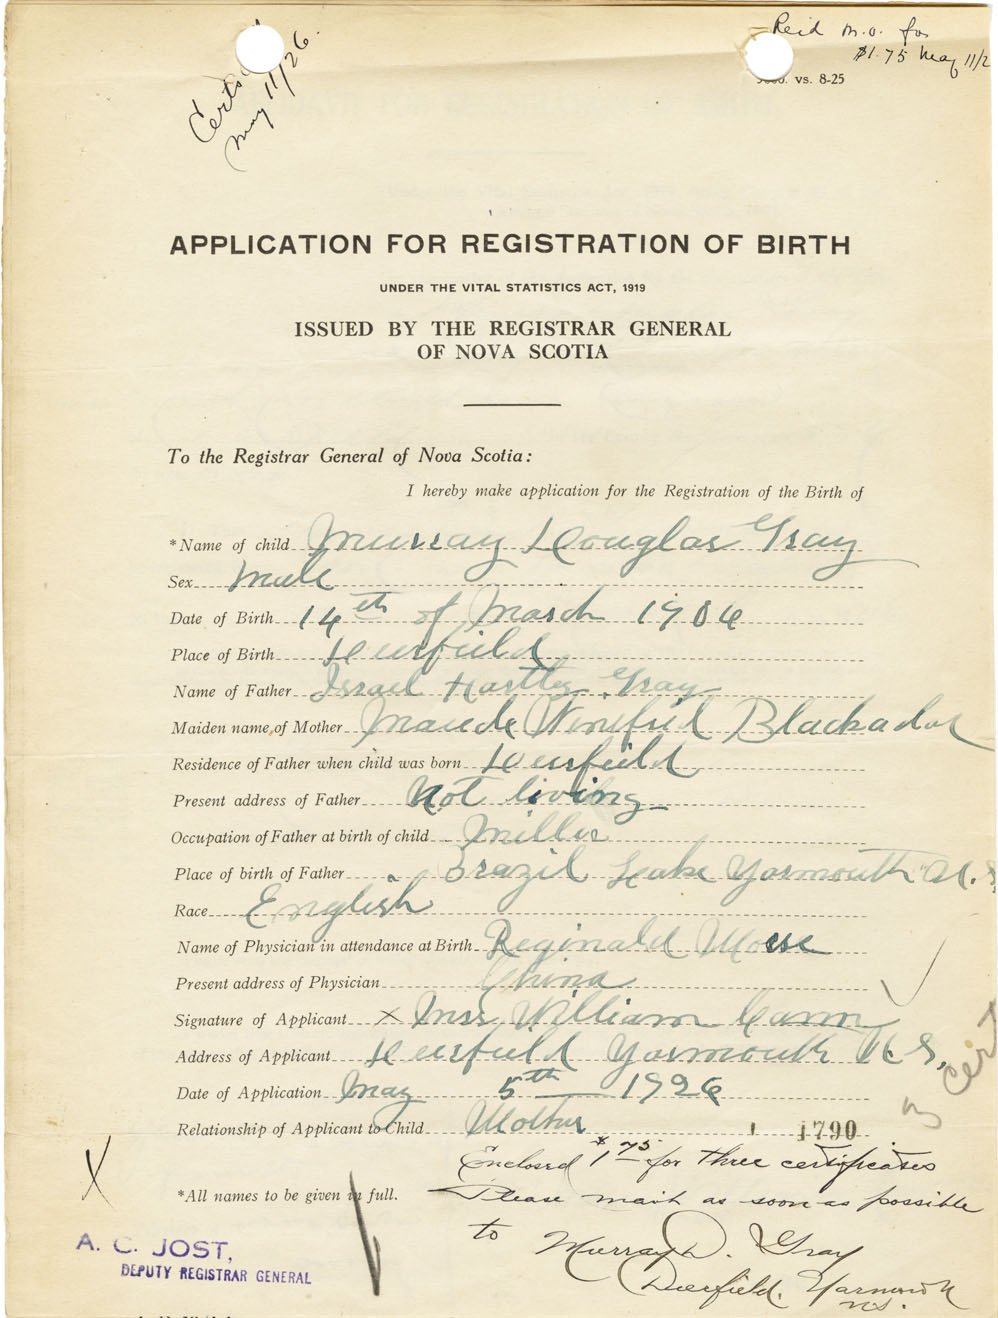 Certs
May 11/26.
Reid m.o. for
$1.75 May 11/2
vs. 8-25
APPLICATION FOR REGISTRATION OF BIRTH
UNDER THE VITAL STATISTICS ACT, 1919
ISSUED BY THE REGISTRAR GENERAL
OF NOVA SCOTIA
To the Registrar General of Nova Scotia:
I hereby make application for the Registration of the Birth of
*Name of child Murray Douglas Gray
Sex Male
Date of Birth 14th of March 1906
Place of Birth Deerfield
Name of Father Israel Hartley Gray
Maiden name of Mother Maude Winifrid Blackador
Residence of Father when child was born Deerfield
Present address of Father Not living
Occupation of Father at birth of child Miller
Place of birth of Father Brazil Lake Yarmouth N.S.
Race English
Name of Physician in attendance at Birth Reginald Morse
Present address of Physician China
Signature of Applicant x Mrs William Cann
Address of Applicant Deerfield Yarmouth N S,
Date of Application May 5th 1926
Relationship of Applicant to Child Mother 1790
Enclosed $1.75 for three certificates
*All names to be given in full. Please mail as soon as possible
to Murray D. Gray
Deerfield, Yarmouth
N.S.
3 Cert
X
A. C. JOST,
DEPUTY REGISTRAR GENERAL